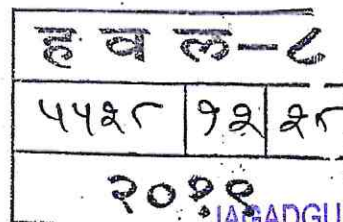 हवल-८
५५२८ १२ २८
२०१९
JAGADGU